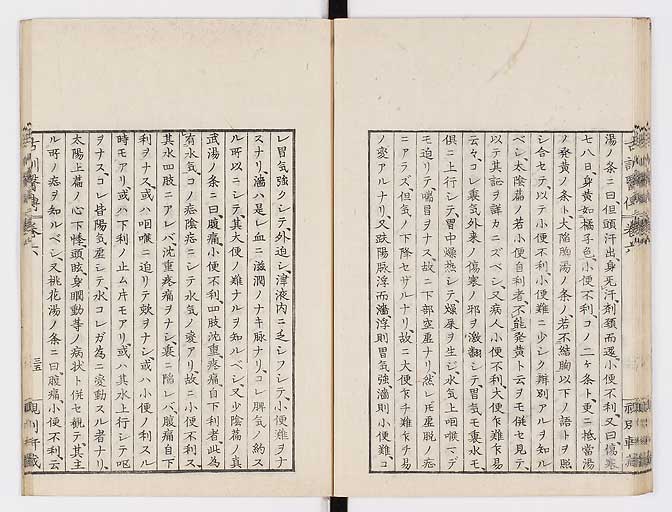 湯ノ条ニ曰但頭汗出身无汗剤頸而還小便不利又曰傷寒
七八日身黄如橘子色小便不利コノ二ケ条ト更ニ抵當湯
ノ発黄ノ条ト大陥胸湯ノ条ノ若不結胸以下ノ語トヲ照
シ合セテ以テ小便不利小便難ニ少シク辨別アルヲ知ル
ベシ太陰篇ノ若小便自利者不能発黄ト云ヲモ併セ見テ
以テ其証ヲ詳カニスベシ又病人小便不利大便乍難乍易
云々コレ裏気外来ノ傷寒ノ邪ヲ激翻シテ冒気モ裏水モ
倶ニ上行シテ胃中燥熱シテ燥屎ヲ生ジ水気上咽喉マデ
モ迫リテ喘冒ヲナス故ニ下部空虚ナリ然レ𪜈虚脱ノ㾮
ニアラズ但気ノ下降セザルナリ故ニ大便乍チ難乍チ易
ノ変アルナリ又趺陽脉浮而濇浮則冒気強濇則小便難コ
レ冒気強クシテ外迫シ津液内ニ乏シフシテ小便難ヲナ
スナリ濇ハ是レ血ニ滋潤ノナキ脉ナリコレ脾気ノ約ス
ル所以ニシテ其大便ノ難ナルヲ知ルベシ又少陰篇ノ真
武湯ノ条ニ曰腹痛小便不利四肢沈重疼痛自下利者此為
有水気コノ㾮陰㾮ニシテ水気ノ変アリ故ニ小便不利ス
其水四肢ニアレバ沈重疼痛ヲナシ裏ニ陥レバ腹痛自下
利ヲナス或ハ咽喉ニ迫リテ欬ヲナシ或ハ小便ノ利スル
時モアリ或ハ下利ノ止ム片モアリ或ハ其水上行シテ嘔
ヲナスコレ皆陽気虚シテ水コレガ為ニ変動スル者ナリ
太陽上篇ノ心下悸頭眩身瞤動等ノ病状ト併セ観テ其主
ル所ノ㾮ヲ知ルベシ又桃花湯ノ条ニ曰腹痛小便不利云